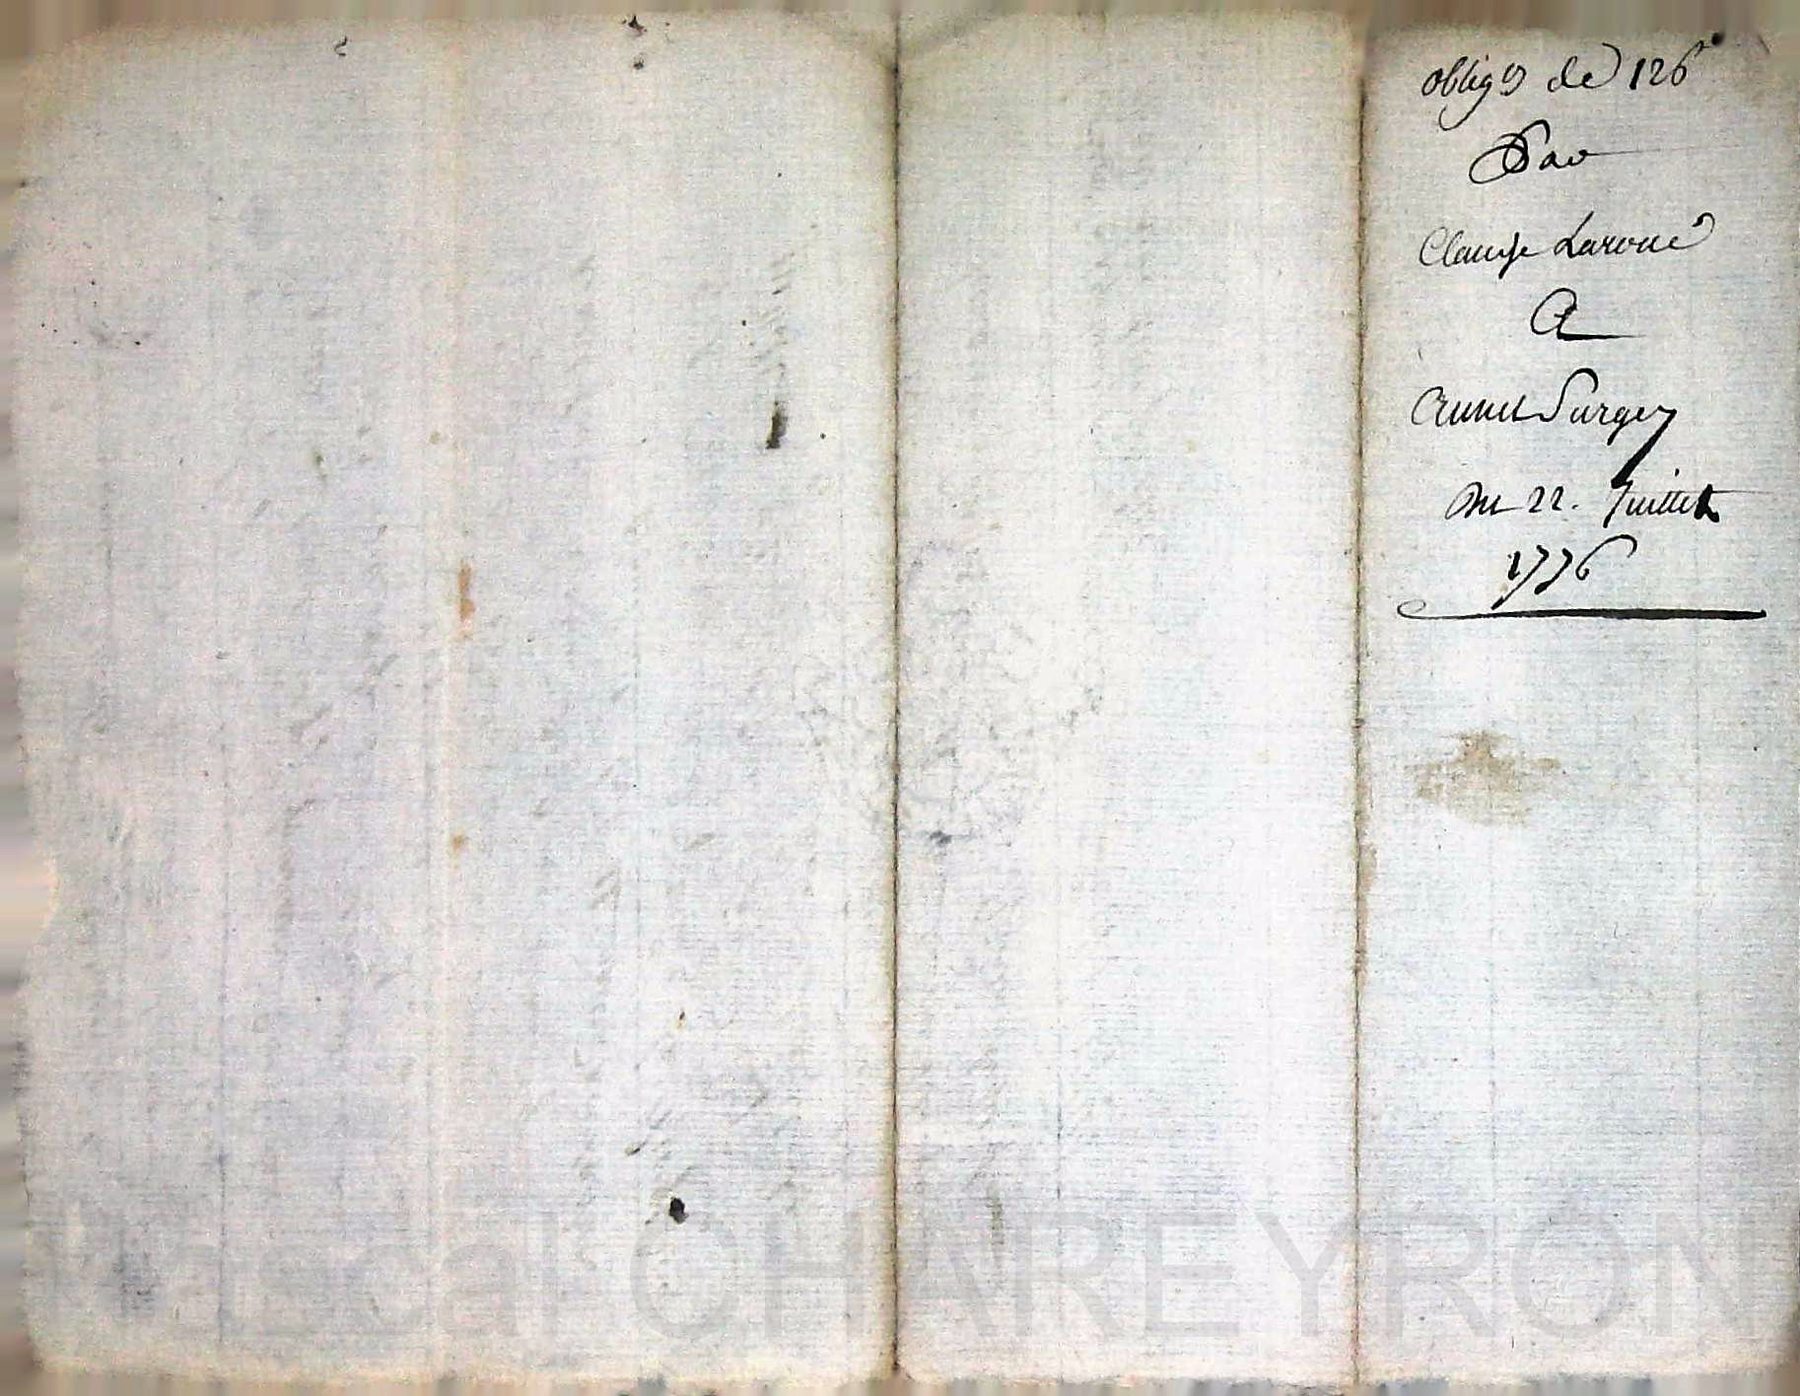 oblig^on de 126^#
Par
Claude Laroue
A
Annet Surgey
Du 22. Juillet
1776
Pascal CHAREYRON